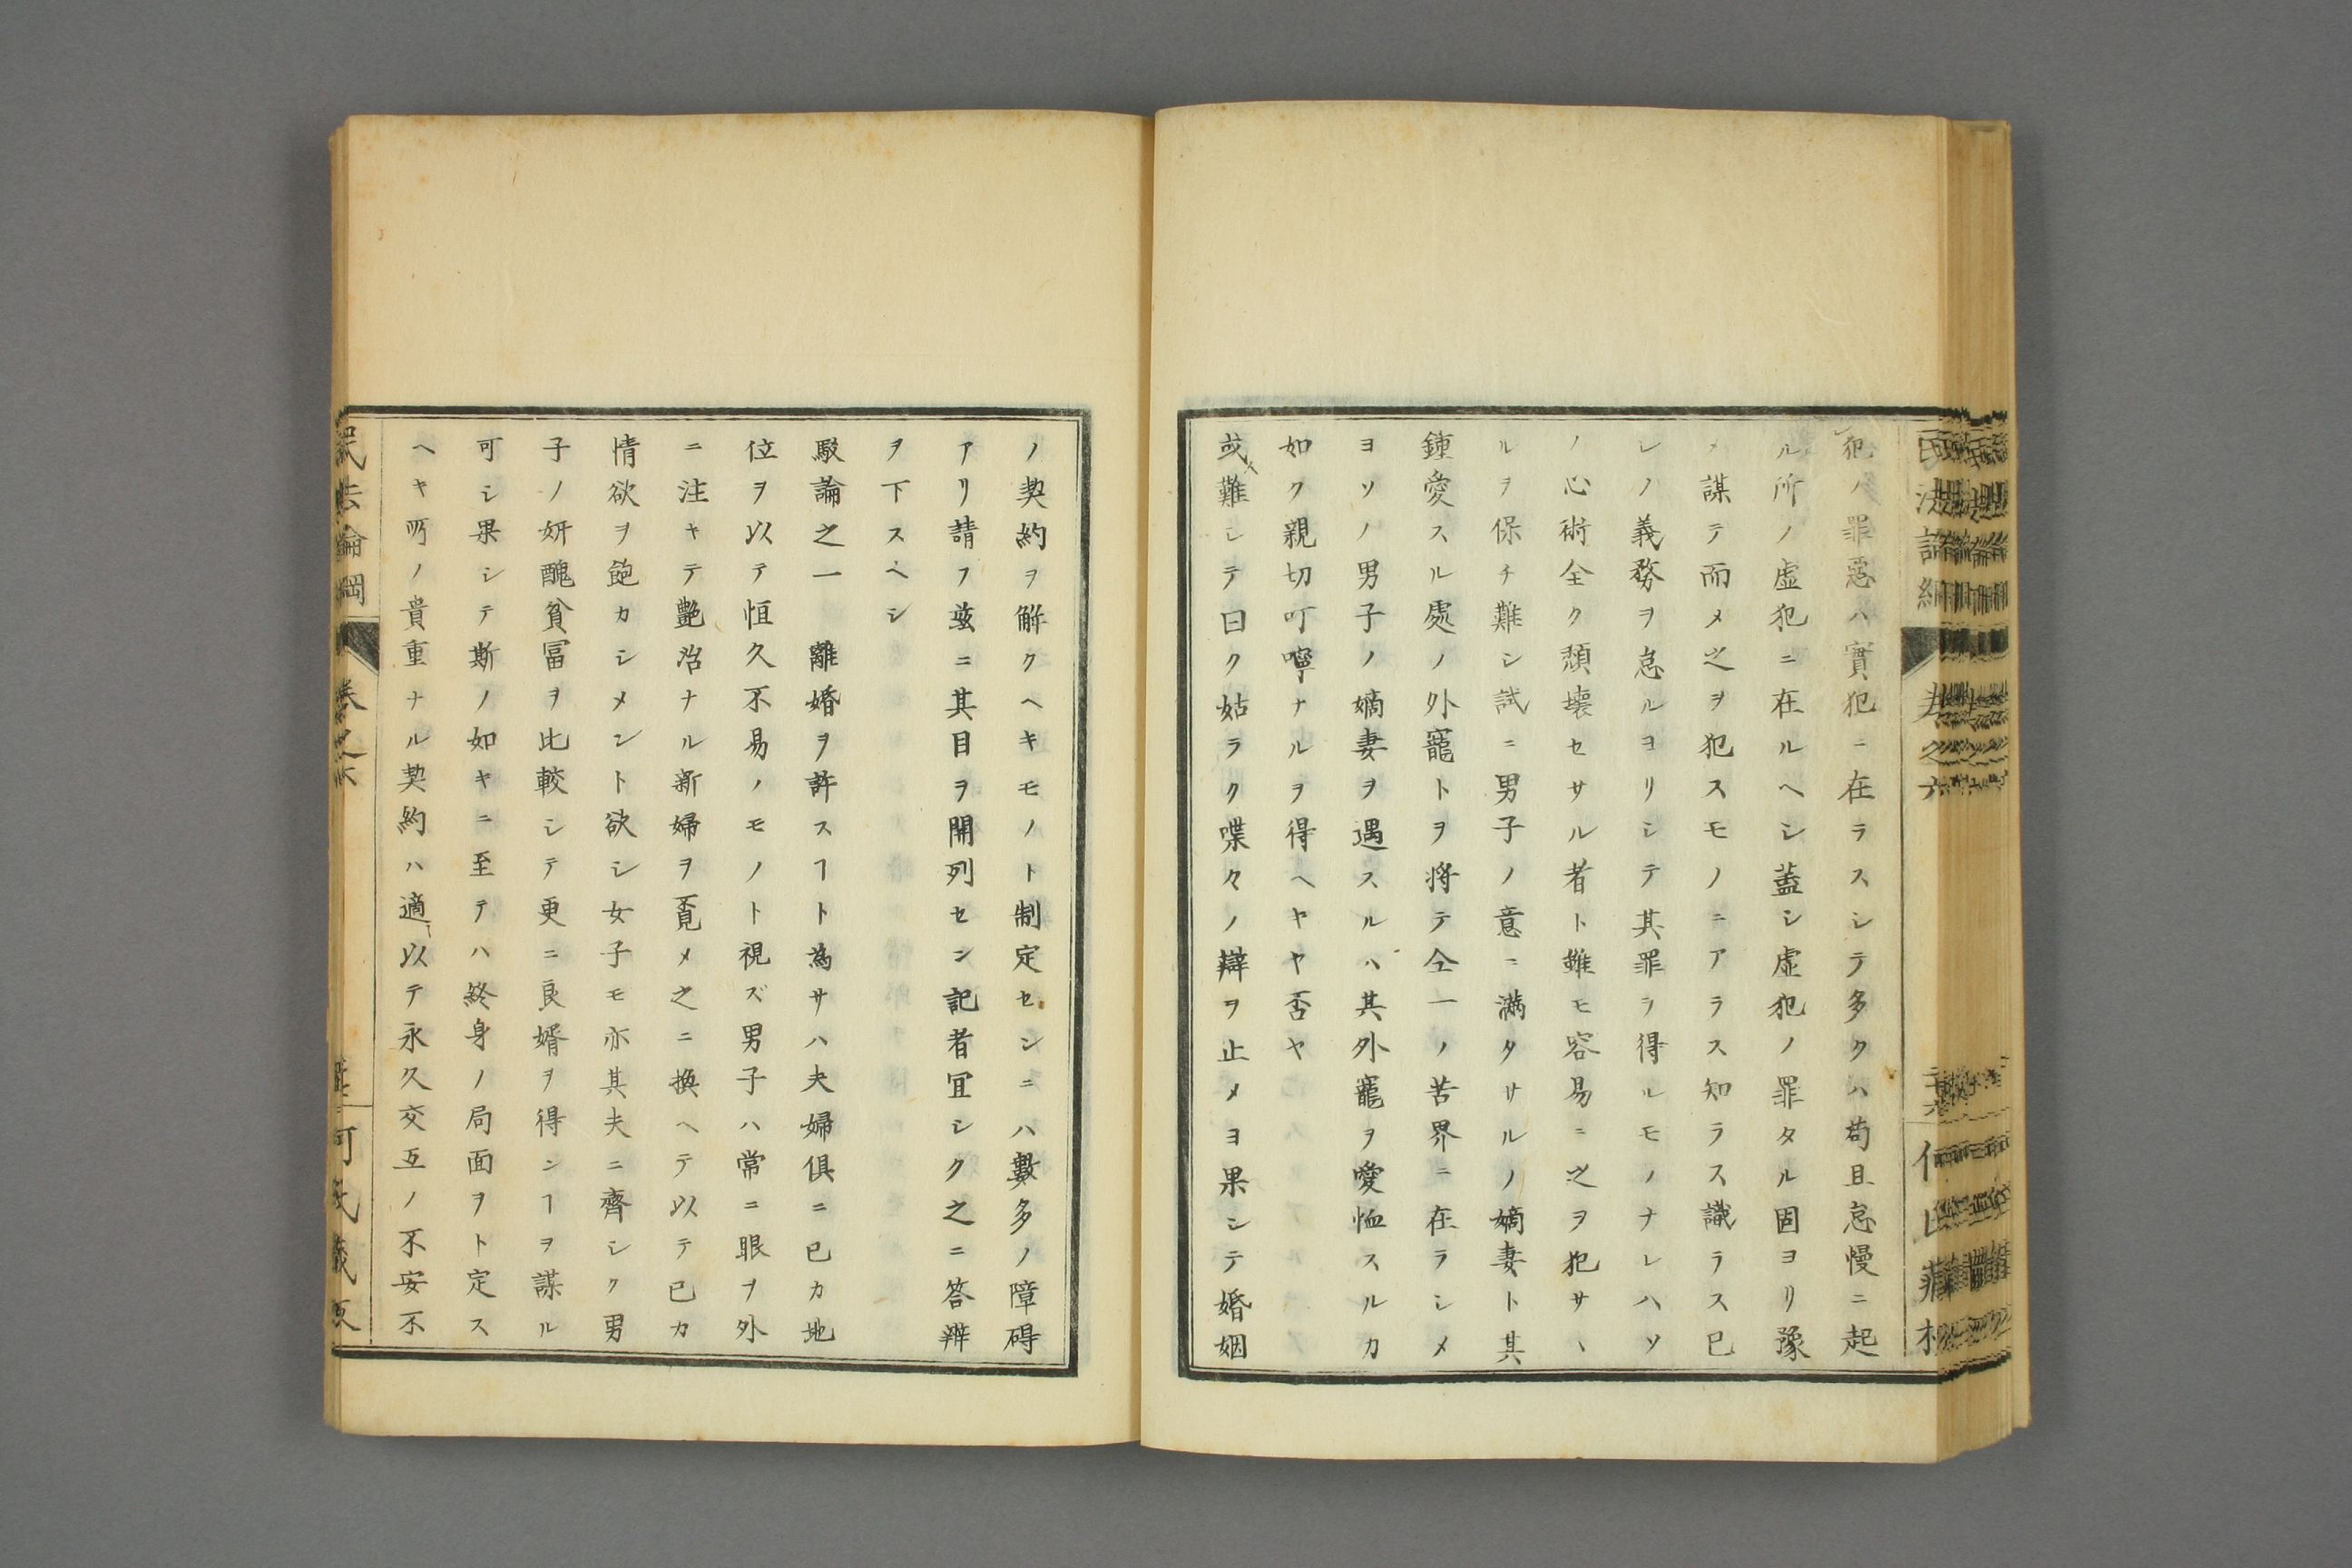 犯ノ罪惡ハ實犯ニ在ラスシテ多クハ苟且怠慢ニ起
ル所ノ虚犯ニ在ルヘシ蓋シ虚犯ノ罪タル固ヨリ豫
メ謀テ而メ之ヲ犯スモノニアラス知ラス識ラス已
レノ義務ヲ怠ルヨリシテ其罪ヲ得ルモノナレハソ
ノ心術全ク頽壊セサル者ト雖モ容易ニ之ヲ犯サヽ
ルヲ保チ難シ試ニ男子ノ意ニ滿タサルノ嫡妻ト其
鍾愛スル處ノ外寵トヲ将テ仝一ノ苦界ニ在ラシメ
ヨソノ男子ノ嫡妻ヲ遇スルハ其外寵ヲ愛恤スルカ
如ク親切叮嚀ナルヲ得ヘキヤ否ヤ
或難シテ曰ク姑ラク喋々ノ辯ヲ止メヨ果シテ婚姻
ノ契約ヲ解クヘキモノト制定センニハ數多ノ障碍
アリ請フ茲ニ其目ヲ開列セン記者宜シク之ニ答辨
ヲ下スヘシ
駁論之一 離婚ヲ許スヿト為サハ夫婦俱ニ已カ地
位ヲ以テ恒久不易ノモノト視ズ男子ハ常ニ眼ヲ外
ニ注キテ艶冶ナル新婦ヲ覓メ之ニ換ヘテ以テ已カ
情欲ヲ飽カシメント欲シ女子モ亦其夫ニ齊シク男
子ノ妍醜貧冨ヲ比較シテ更ニ良婿ヲ得ンヿヲ謀ル
可シ果シテ斯ノ如キニ至テハ終身ノ局面ヲト定ス
ヘキ所ノ貴重ナル契約ハ適以テ永久交互ノ不安不
民法論綱
卷之六
何氏藏板